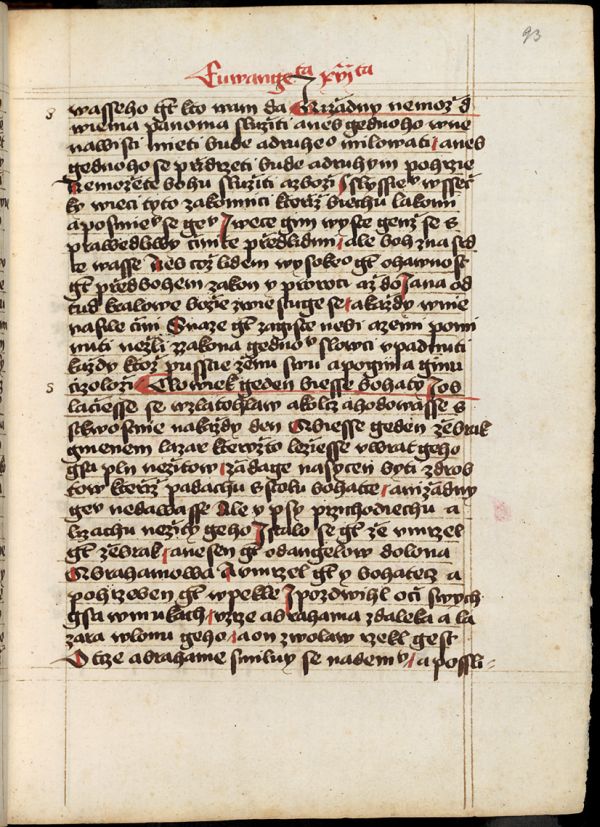 93
Euwange ta xvi ta
wasseho gt kto wam da Nizadny nemoz d
wiema panoma sluziti aneb gednoho w nie
nawisti mieti bude adruheo milowati aneb
gednoho se przdrzeti bude adruhym pohrzie
Nemozete bohu sluziti azbozi Islyssie w wssec
ky wieci tyto zakonnici kterziz biechu lakomi
aposmie se gey I wece gim wy ste genz se s
prawedliwy cinite przedlidmi ale boh zna srd
ce wasse Neb coz lidem wysoko gt ohawnost
gt przedbohem zakon y proroci az do Iana od
tud kralowe bozie zwie stuge se akazdy w nie
nasile cini Snaze gt zagiste nebi azemi pomi
nuti nezli zzakona gedno slowci upadnuti
kazdy ktoz pusstie zenu swu apogima ginu
cizolozi Clowiek geden biesse bohaty Iob
laciesse se wzlatohlaw akolcz ahodowasse s
skwostnie nakazdy den Abiesse geden zebrak
gmenem lazar kteryzto leziesse uwrat geho
gsa pln nezitow zadage nasycen byti zdrob
tow kterziz padachu sstolu bohatce anizadny
gey nedawasse Ale y psy przichodiechu a
lizachu nezity geho Istalo se gt ze umrzel
gt zebrak anesen gt odangelow dolona
Abrahamowa Aumrzel gt y bohatecz a
pohrzeben gt wpekle Ipozdwihl oci swych
gsa wmukach uzrze abrahama zdaleka a la
zara wlonu geho aon zwolaw rzekl gest
Otcze abrahame smiluy se nademy a possli